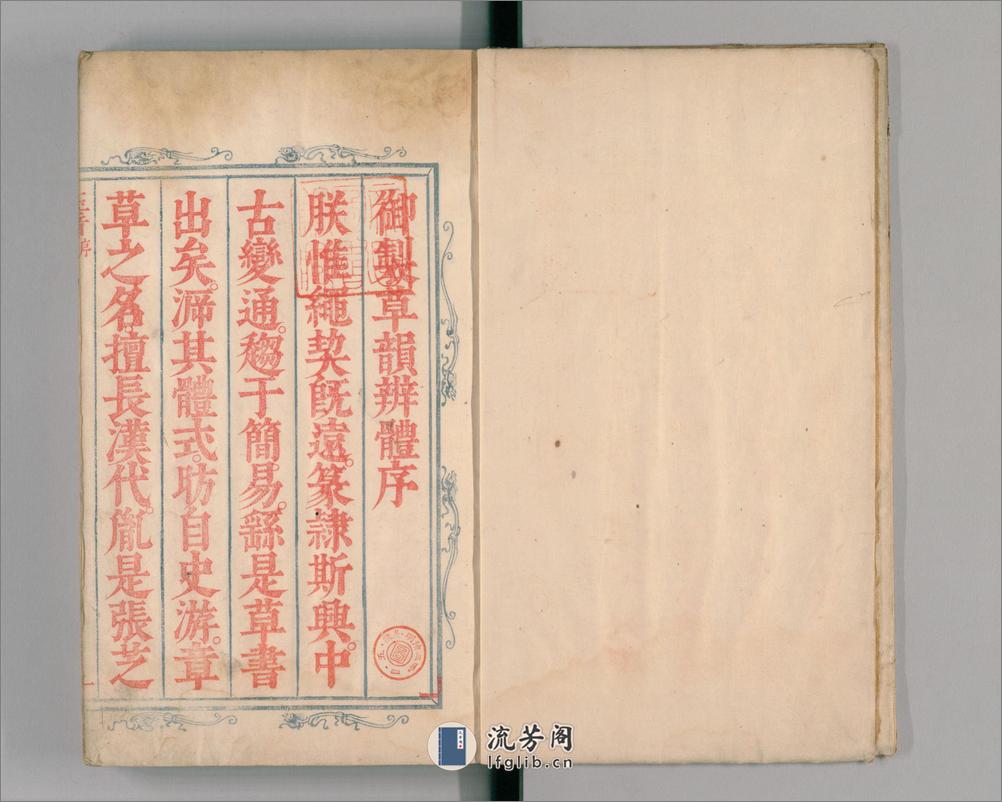 御製草韻辨體序
朕惟繩契旣遠。篆隷斯興。中
古變通。趨于簡易。繇是草書
出矣。渧其體式。昉自史游。章
草之名。擅長漢代。胤是張芝
流芳阁
lfglib.cn